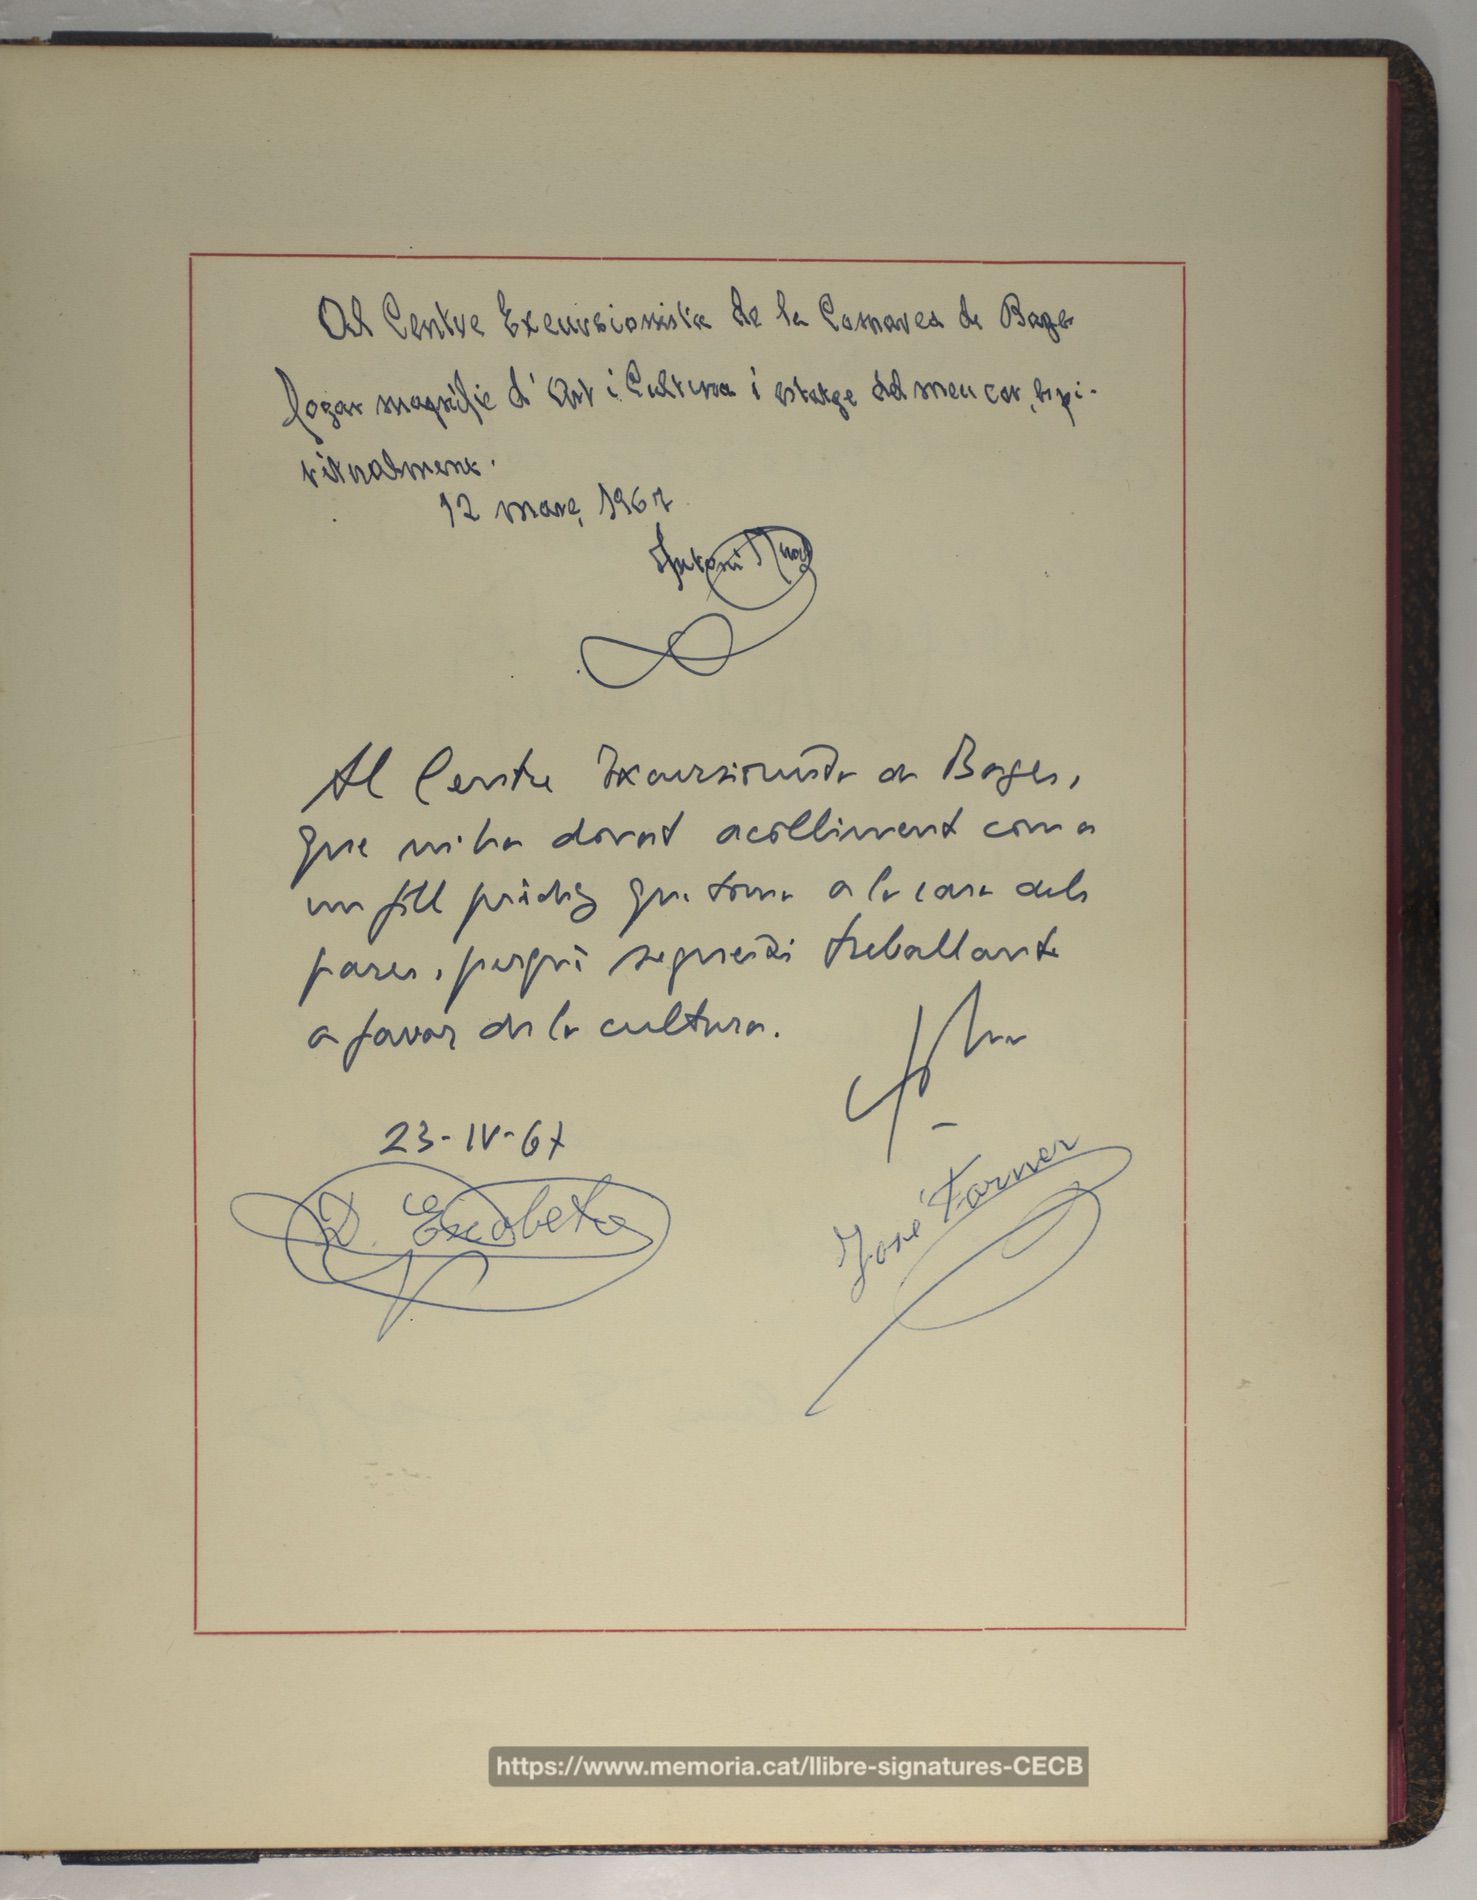 Al Centre Excursionista de la Comarca de Bages
logar magnífic d'Art i Cultura i estatge del meu cor, espi-
ritualment.
12 març 1967
Antoni
Al Centre Excursionista de Bages,
que m'ha donat acolliment com a
un fill pròdig que torna a la casa dels
pares, perquè segueixi treballant
a favor de la cultura.
23-IV-67
D. Escobet
José Farner
https://www.memoria.cat/llibre-signatures-CECB